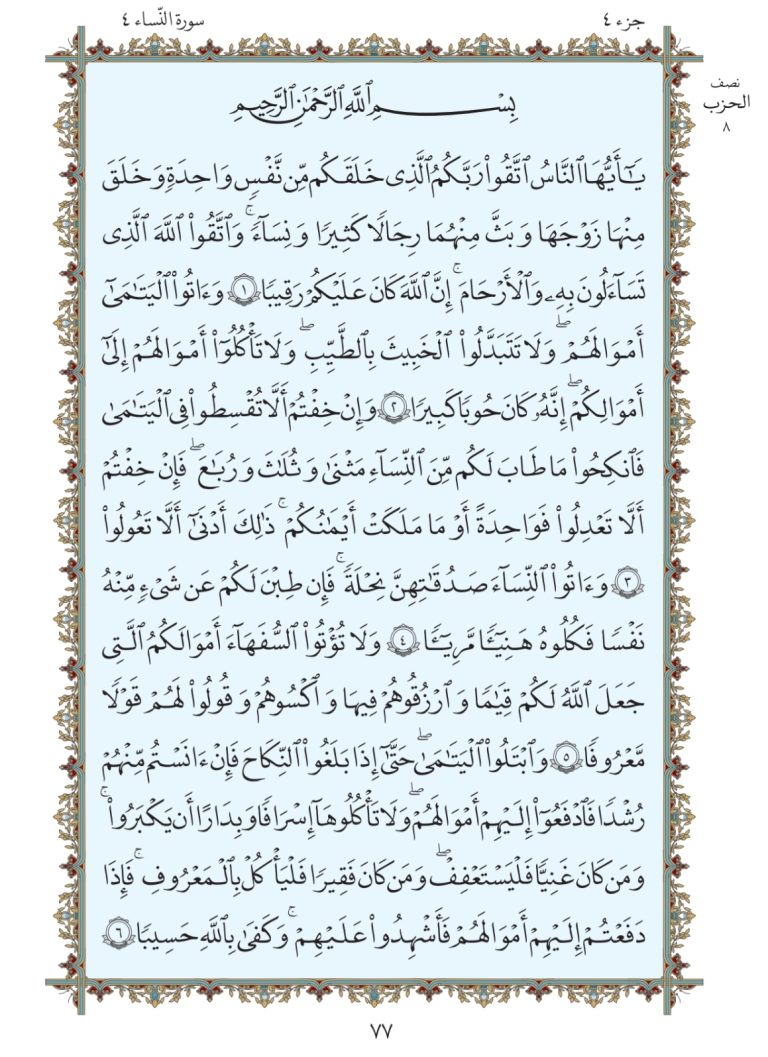 جزء ٤
سورة النّساء ٤
نصف
الحزب
٨
بِسْمِ ٱللَّهِ ٱلرَّحْمَٰنِ ٱلرَّحِيمِ
يَٰٓأَيُّهَا ٱلنَّاسُ ٱتَّقُوا۟ رَبَّكُمُ ٱلَّذِى خَلَقَكُم مِّن نَّفْسٍ وَاحِدَةٍ وَخَلَقَ
مِنْهَا زَوْجَهَا وَبَثَّ مِنْهُمَا رِجَالًا كَثِيرًا وَنِسَآءً ۚ وَٱتَّقُوا۟ ٱللَّهَ ٱلَّذِى
تَسَآءَلُونَ بِهِۦ وَٱلْأَرْحَامَ ۚ إِنَّ ٱللَّهَ كَانَ عَلَيْكُمْ رَقِيبًا ١ وَءَاتُوا۟ ٱلْيَتَٰمَىٰٓ
أَمْوَٰلَهُمْ ۖ وَلَا تَتَبَدَّلُوا۟ ٱلْخَبِيثَ بِٱلطَّيِّبِ ۖ وَلَا تَأْكُلُوٓا۟ أَمْوَٰلَهُمْ إِلَىٰٓ
أَمْوَٰلِكُمْ ۚ إِنَّهُۥ كَانَ حُوبًا كَبِيرًا ٢ وَإِنْ خِفْتُمْ أَلَّا تُقْسِطُوا۟ فِى ٱلْيَتَٰمَىٰ
فَٱنكِحُوا۟ مَا طَابَ لَكُم مِّنَ ٱلنِّسَآءِ مَثْنَىٰ وَثُلَٰثَ وَرُبَٰعَ ۖ فَإِنْ خِفْتُمْ
أَلَّا تَعْدِلُوا۟ فَوَٰحِدَةً أَوْ مَا مَلَكَتْ أَيْمَٰنُكُمْ ۚ ذَٰلِكَ أَدْنَىٰٓ أَلَّا تَعُولُوا۟
٣ وَءَاتُوا۟ ٱلنِّسَآءَ صَدُقَٰتِهِنَّ نِحْلَةً ۚ فَإِن طِبْنَ لَكُمْ عَن شَىْءٍ مِّنْهُ
نَفْسًا فَكُلُوهُ هَنِيٓـًٔا مَّرِيٓـًٔا ٤ وَلَا تُؤْتُوا۟ ٱلسُّفَهَآءَ أَمْوَٰلَكُمُ ٱلَّتِى
جَعَلَ ٱللَّهُ لَكُمْ قِيَٰمًا وَٱرْزُقُوهُمْ فِيهَا وَٱكْسُوهُمْ وَقُولُوا۟ لَهُمْ قَوْلًا
مَّعْرُوفًا ٥ وَٱبْتَلُوا۟ ٱلْيَتَٰمَىٰ ۖ حَتَّىٰٓ إِذَا بَلَغُوا۟ ٱلنِّكَاحَ فَإِنْ ءَانَسْتُم مِّنْهُمْ
رُشْدًا فَٱدْفَعُوٓا۟ إِلَيْهِمْ أَمْوَٰلَهُمْ ۖ وَلَا تَأْكُلُوهَآ إِسْرَافًا وَبِدَارًا أَن يَكْبَرُوا۟ ۚ
وَمَن كَانَ غَنِيًّا فَلْيَسْتَعْفِفْ ۖ وَمَن كَانَ فَقِيرًا فَلْيَأْكُلْ بِٱلْمَعْرُوفِ ۚ فَإِذَا
دَفَعْتُمْ إِلَيْهِمْ أَمْوَٰلَهُمْ فَأَشْهِدُوا۟ عَلَيْهِمْ ۚ وَكَفَىٰ بِٱللَّهِ حَسِيبًا ٦
٧٧